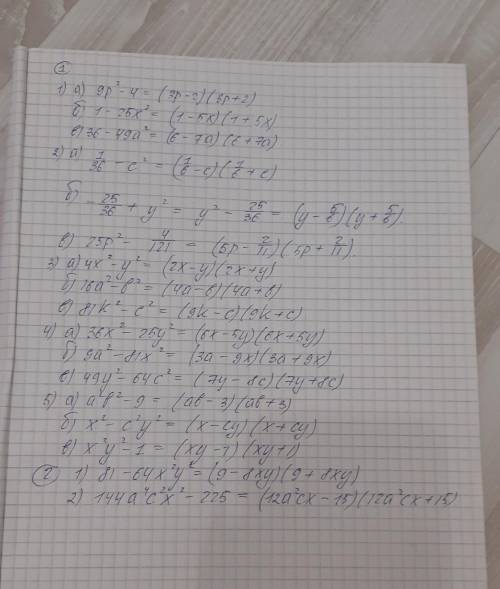 ①
1) а) 9p² - 4 = (3p - 2)(3p + 2)
б) 1 - 25x² = (1 - 5x)(1 + 5x)
в) 36 - 49a² = (6 - 7a)(6 + 7a)
2) а) 1/36 - c² = (1/6 - c)(1/6 + c)
б) - 25/36 + y² = y² - 25/36 = (y - 5/6)(y + 5/6)
в) 25p² - 4/121 = (5p - 2/11)(5p + 2/11).
3) а) 4x² - y² = (2x - y)(2x + y)
б) 16a² - b² = (4a - b)(4a + b)
в) 81k² - c² = (9k - c)(9k + c)
4) а) 36x² - 25y² = (6x - 5y)(6x + 5y)
б) 9a² - 81x² = (3a - 9x)(3a + 9x)
в) 49y² - 64c² = (7y - 8c)(7y + 8c)
5) а) a²b² - 9 = (ab - 3)(ab + 3)
б) x² - c²y² = (x - cy)(x + cy)
в) x²y² - 1 = (xy - 1)(xy + 1)
② 1) 81 - 64x²y² = (9 - 8xy)(9 + 8xy)
2) 144a⁴c²x² - 225 = (12a²cx - 15)(12a²cx + 15)